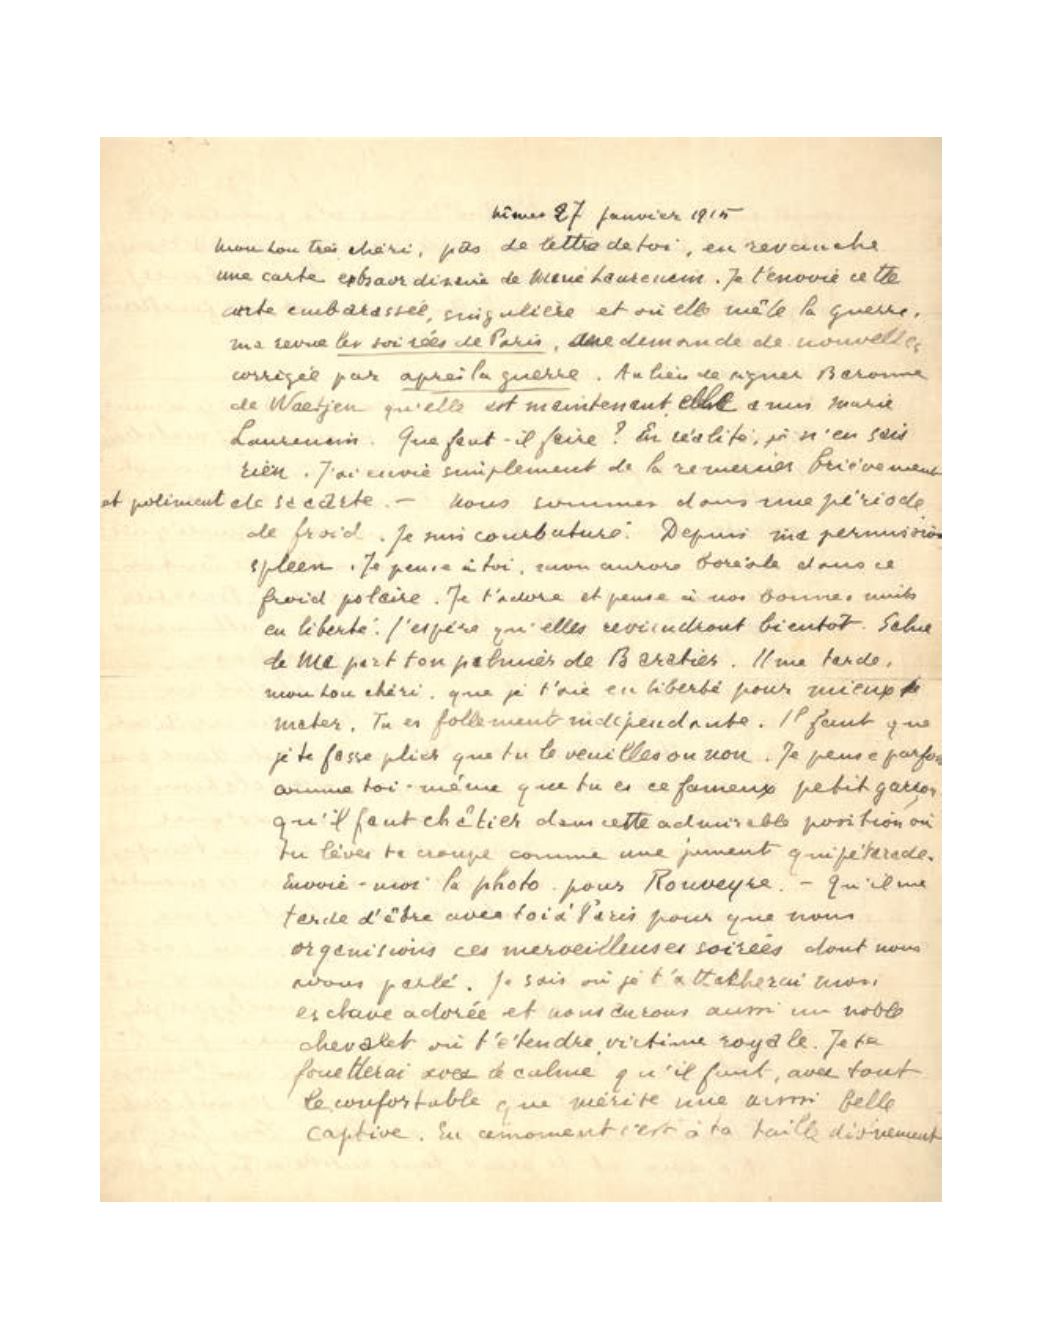 Nîmes 27 janvier 1915
Mon Lou très chéri, pas de lettre de toi, en revanche
une carte extraordinaire de Marie Laurencin. Je t'envoie cette
carte embarassée, singulière et où elle mêle la guerre,
ma revue les soirées de Paris, une demande de nouvelles
corrigée par après la guerre. Au lieu de signer Baronne
de Waetjen qu'elle est maintenant elle a mis Marie
Laurencin. Que faut-il faire ? En réalité, je n'en sais
rien. J'ai envie simplement de la remercier brièvement
et poliment de sa carte. — Nous sommes dans une période
de froid. Je suis courbaturé. Depuis ma permission
spleen. Je pense à toi, mon aurore boréale dans ce
froid polaire. Je t'adore et pense à nos bonnes nuits
en liberté. J'espère qu'elles reviendront bientôt. Salue
de ma part ton palmier de Baratier. Il me tarde,
mon Lou chéri, que je t'aie en liberté pour mieux te
mater. Tu es follement indépendante. Il faut que
je te fasse plier que tu le veuilles ou non. Je pense parfois
comme toi-même que tu es ce fameux petit garçon
qu'il faut châtier dans cette admirable position où
tu lèves ta croupe comme une jument qui pétarade.
Envoie-moi la photo pour Rouveyre. — Qu'il me
tarde d'être avec toi à Paris pour que nous
organisions ces merveilleuses soirées dont nous
avons parlé. Je sais où je t'attacherai mon
esclave adorée et nous aurons aussi un noble
chevalet où t'étendre, victime royale. Je te
fouetterai avec le calme qu'il faut, avec tout
le confortable que mérite une aussi belle
captive. En ce moment c'est à ta taille divinement